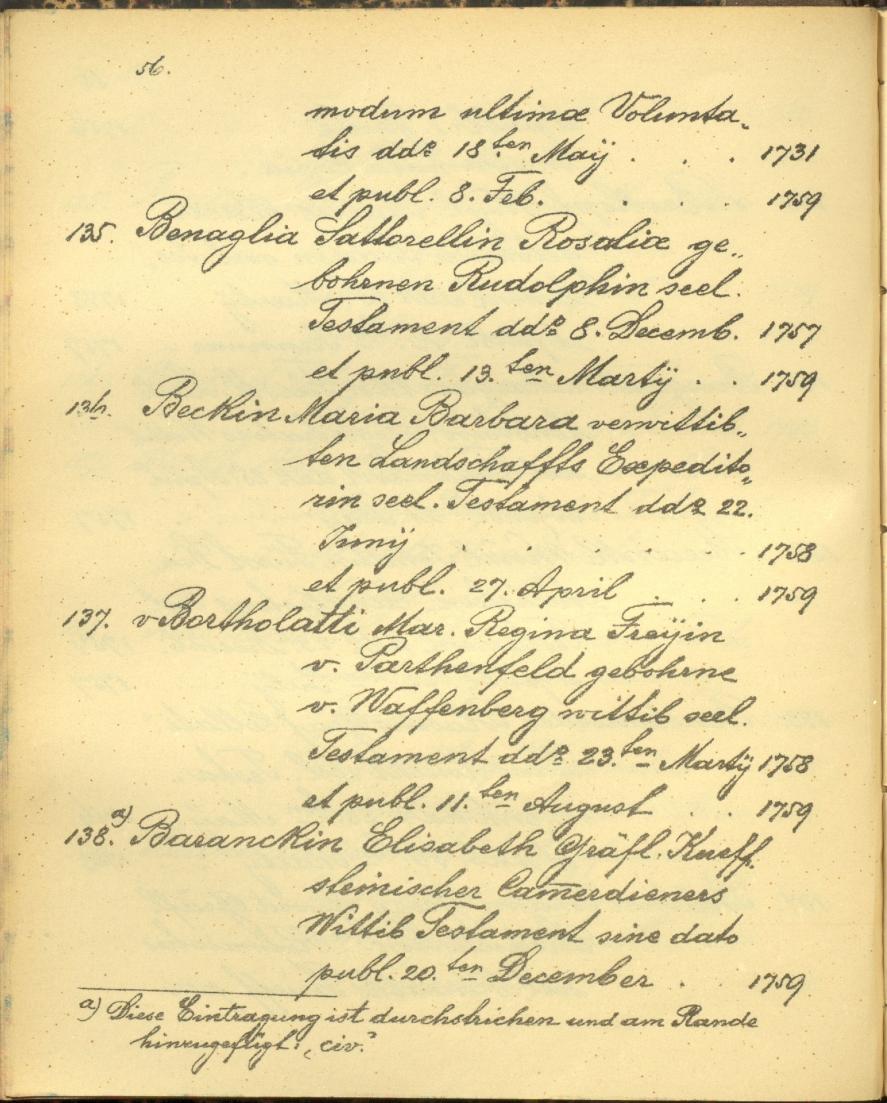 56.
modum ultimæ Volunta„
tis ddº 18ten Maÿ . . . 1731
et publ. 8. Feb. . . . 1759
135. Benaglia Sattorellin Rosaliæ ge„
bohrnen Rudolphin seel.
Testament ddº 8. Decemb. 1757
et publ. 13.ten Martÿ . . 1759
136. Beckin Maria Barbara verwittib„
ten Landschaffts Expedito„
rin seel. Testament ddº 22.
Junÿ . . . . . . 1758
et publ. 27. April . . . 1759
137. v Bartholatti Mar. Regina Freÿin
v. Parthenfeld gebohrne
v. Waffenberg wittib seel.
Testament ddº 23.ten Martÿ 1758
et publ. 11.ten August . . 1759
138.a) Baranckin Elisabeth Gräfl. Kueff„
steinischer Cam̅erdieners
Wittib Testament sine dato
publ. 20.ten December . . 1759
a) Diese Eintragung ist durchstrichen und am Rande
hinzugefügt: „civ.“